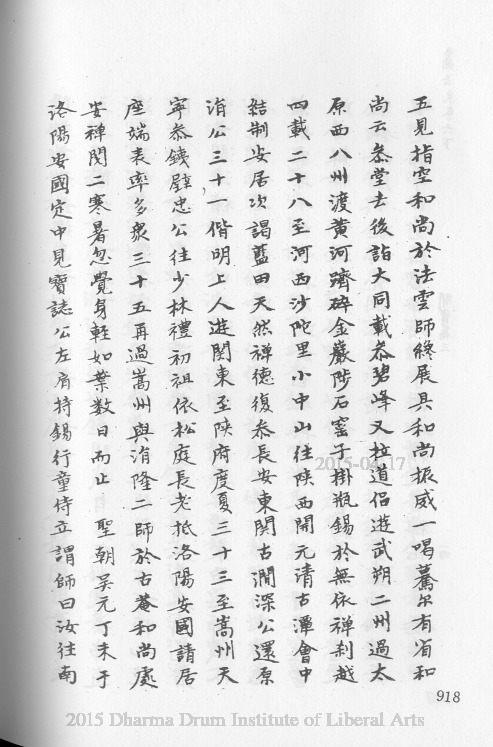 五見指空和尚於法雲師終展具和尚振威一喝驀尔有省和
尚云叅堂去後詣大同載叅碧峰又拉道侶遊武朔二州過太
原西八州渡黃河躋碎金巖陟石窰子掛瓶錫於無依禪刹越
四載二十八至河西沙陀里小中山往陕西開元请古潭會中
結制安居次謁藍田天然禪德復叅長安東関古澗深公還原
消公三十一偕明上人遊関東至陕府度夏三十三至嵩州天
寧叅鉄壁忠公往少林禮初祖依松庭長老抵洛陽安國請居
座端表率多衆三十五再過嵩州與消隆二師於古菴和尚處
安禅関二寒暑忽覺身輕如葉数日而止 聖朝吴元丁未于
洛陽安國定中見寶誌公左肩持錫行童侍立謂師曰汝往南
918
2015-04-17
2015 Dharma Drum Institute of Liberal Arts